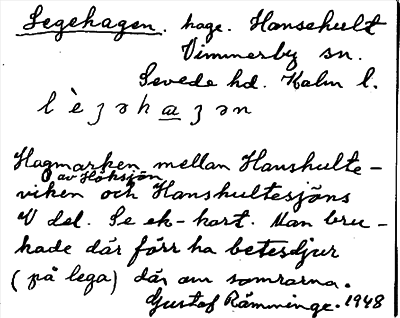 Legehagen. hage. Hansehult
Vimmerby sn.
Sevede hd. Kalm l.
l è ʒ ə h a ʒ ə n
Hagmarken mellan Hanshulte-
av Höksjön
viken och Hanshultesjöns
V del. Se ek-kart. Man bru-
kade där förr ha betesdjur
(på lega) där om somrarna.
Gustaf Rämminge. 1948